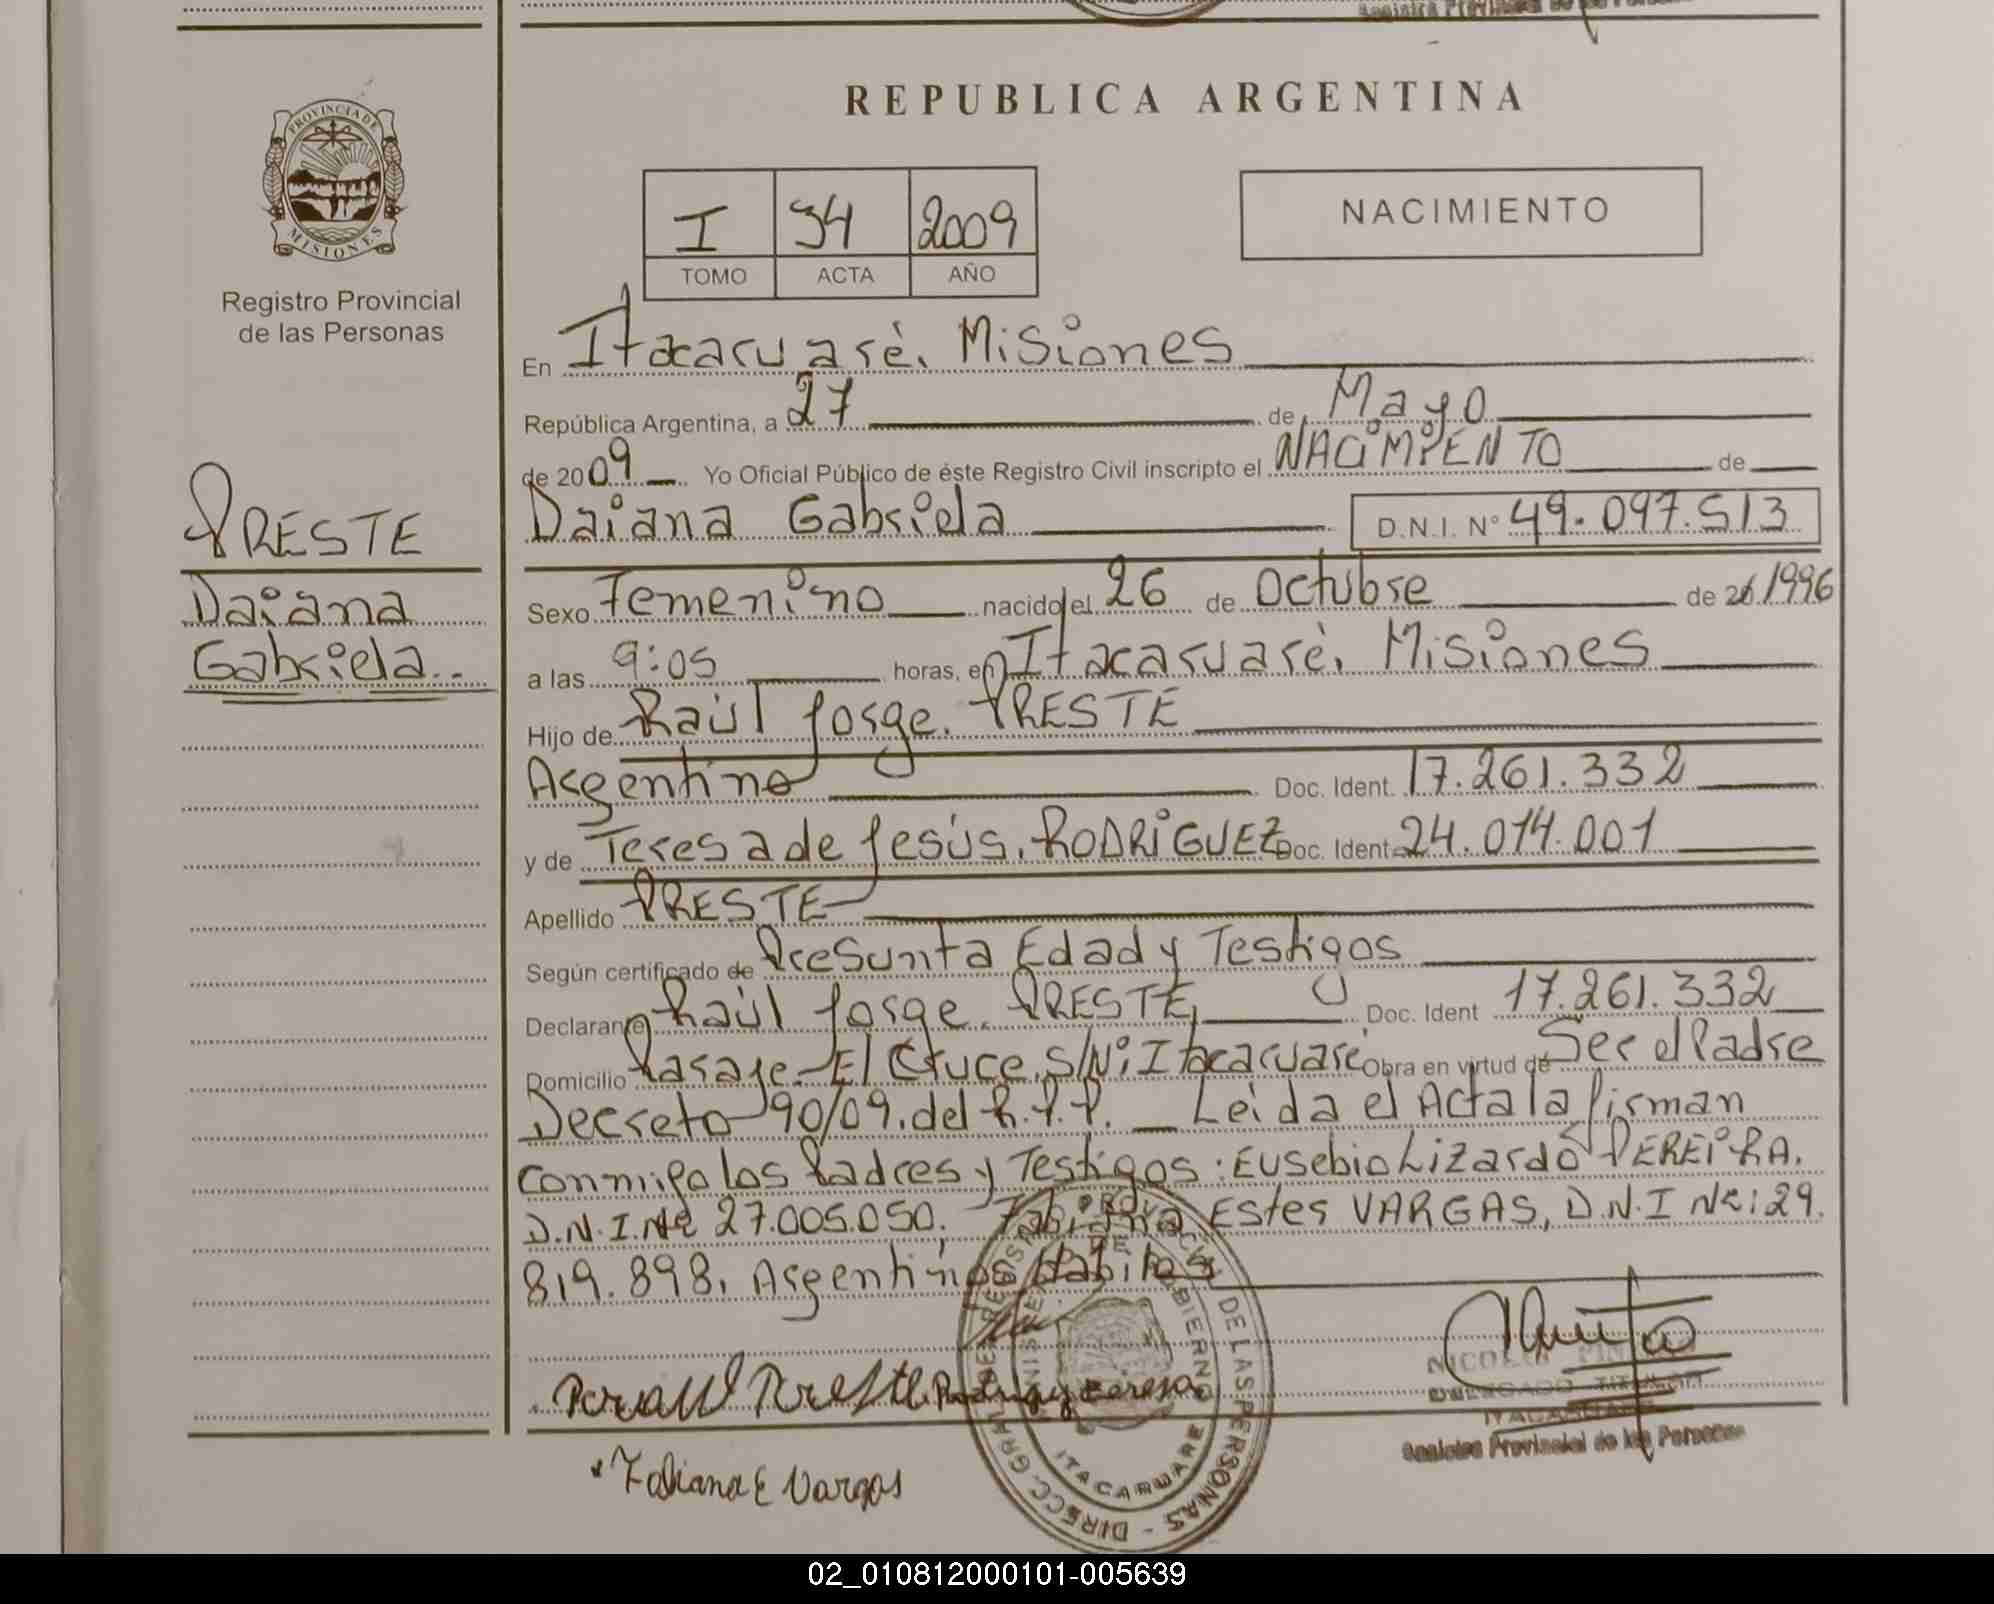 REPUBLICA ARGENTINA
PROVINCIA DE
MISIONES
Registro Provincial
de las Personas
I 34 2009
TOMO ACTA AÑO
NACIMIENTO
PRESTE
Daiana
Gabriela..
En Itacaruaré. Misiones
República Argentina, a 27 de Mayo
de 2009 Yo Oficial Público de éste Registro Civil inscripto el NACIMIENTO de
Daiana Gabriela D.N.I. N° 49.097.513
Sexo Femenino nacido el 26 de Octubre de 20/1996
a las 9:05 horas, en Itacaruaré. Misiones
Hijo de Raúl Jorge. PRESTE
Argentino Doc. Ident. 17.261.332
y de Teresa de Jesús. RODRIGUEZ Doc. Ident 24.014.001
Apellido PRESTE
Según certificado de Presunta Edad y Testigos
Declarante Raúl Jorge. PRESTE Doc. Ident 17.261.332
Domicilio Pasaje El Cruce, S/N; Itacaruaré Obra en virtud de Ser el Padre
Decreto 90/09. del R.P.P. Leída el Acta la firman
conmigo los Padres y Testigos: Eusebio Lizardo PEREIRA.
D.N.I. N° 27.005.050. Fabiana Ester VARGAS, D.N.I N°: 29.
819.898. Argentinos Habiles
Raul Preste Rodriguez Teresa
Fabiana E Vargas
DE LAS PERSONAS - DIRECC. GRAL.
ITACARUARE
DELEGADO TITULAR
ITACARUARE
Registro Provincial de las Personas
02_010812000101-005639